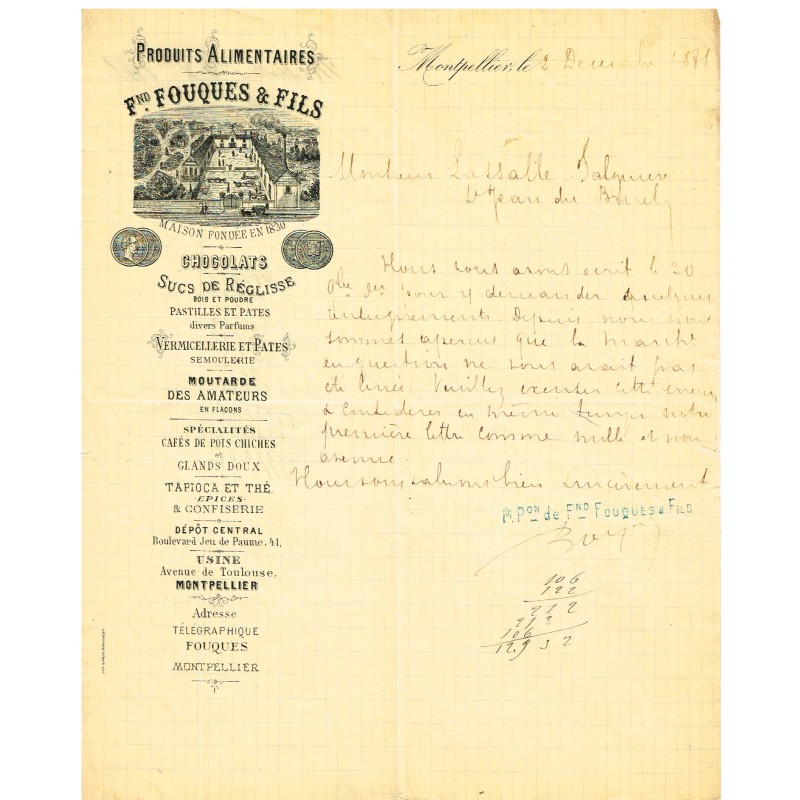 PRODUITS ALIMENTAIRES
FND. FOUQUES & FILS
MAISON FONDÉE EN 1830
CHOCOLATS
SUCS DE RÉGLISSE
BOIS ET POUDRE
PASTILLES ET PATES
divers Parfums
VERMICELLERIE ET PATES
SEMOULERIE
MOUTARDE
DES AMATEURS
EN FLACONS
SPÉCIALITÉS
CAFÉS DE POIS CHICHES
et
GLANDS DOUX
TAPIOCA ET THÉ
EPICES
& CONFISERIE
DÉPÔT CENTRAL
Boulevard Jeu de Paume, 41.
USINE
Avenue de Toulouse.
MONTPELLIER
Adresse
TÉLÉGRAPHIQUE
FOUQUES
MONTPELLIER
Montpellier, le 2 Decembre 1881
Monsieur Lassalle
St Jean du Bruel
Nous vous avons ecrit le 30
9bre pour demander quelques
renseignements. Depuis nous nous
sommes aperçus que la marchse
en question ne vous avait pas
été livrée. Veuillez excuser cette erreur
& considérer en même temps notre
première lettre comme nulle et non
avenue.
Nous vous saluons bien sincèrement
P. Pon de FND FOUQUES & FILS
106
122
212
212
106
12.932